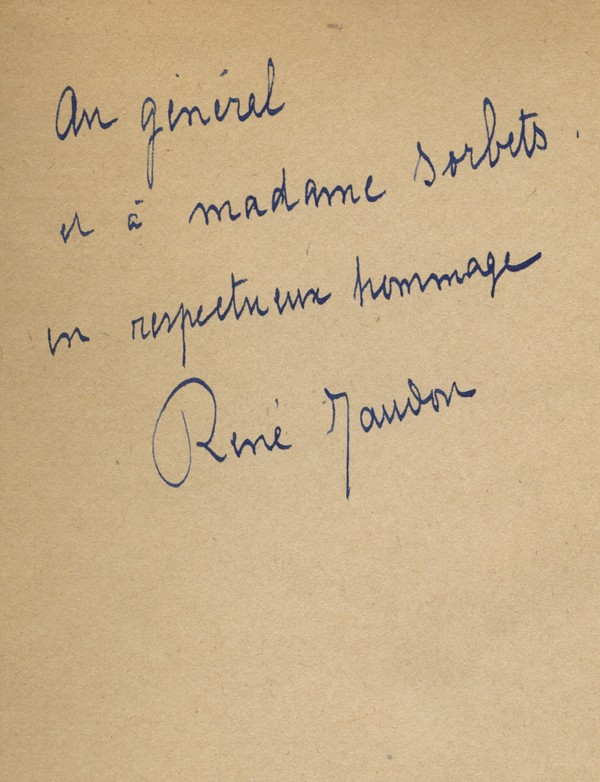 Au général
et à madame Sorbets.
en respectueux hommage
René